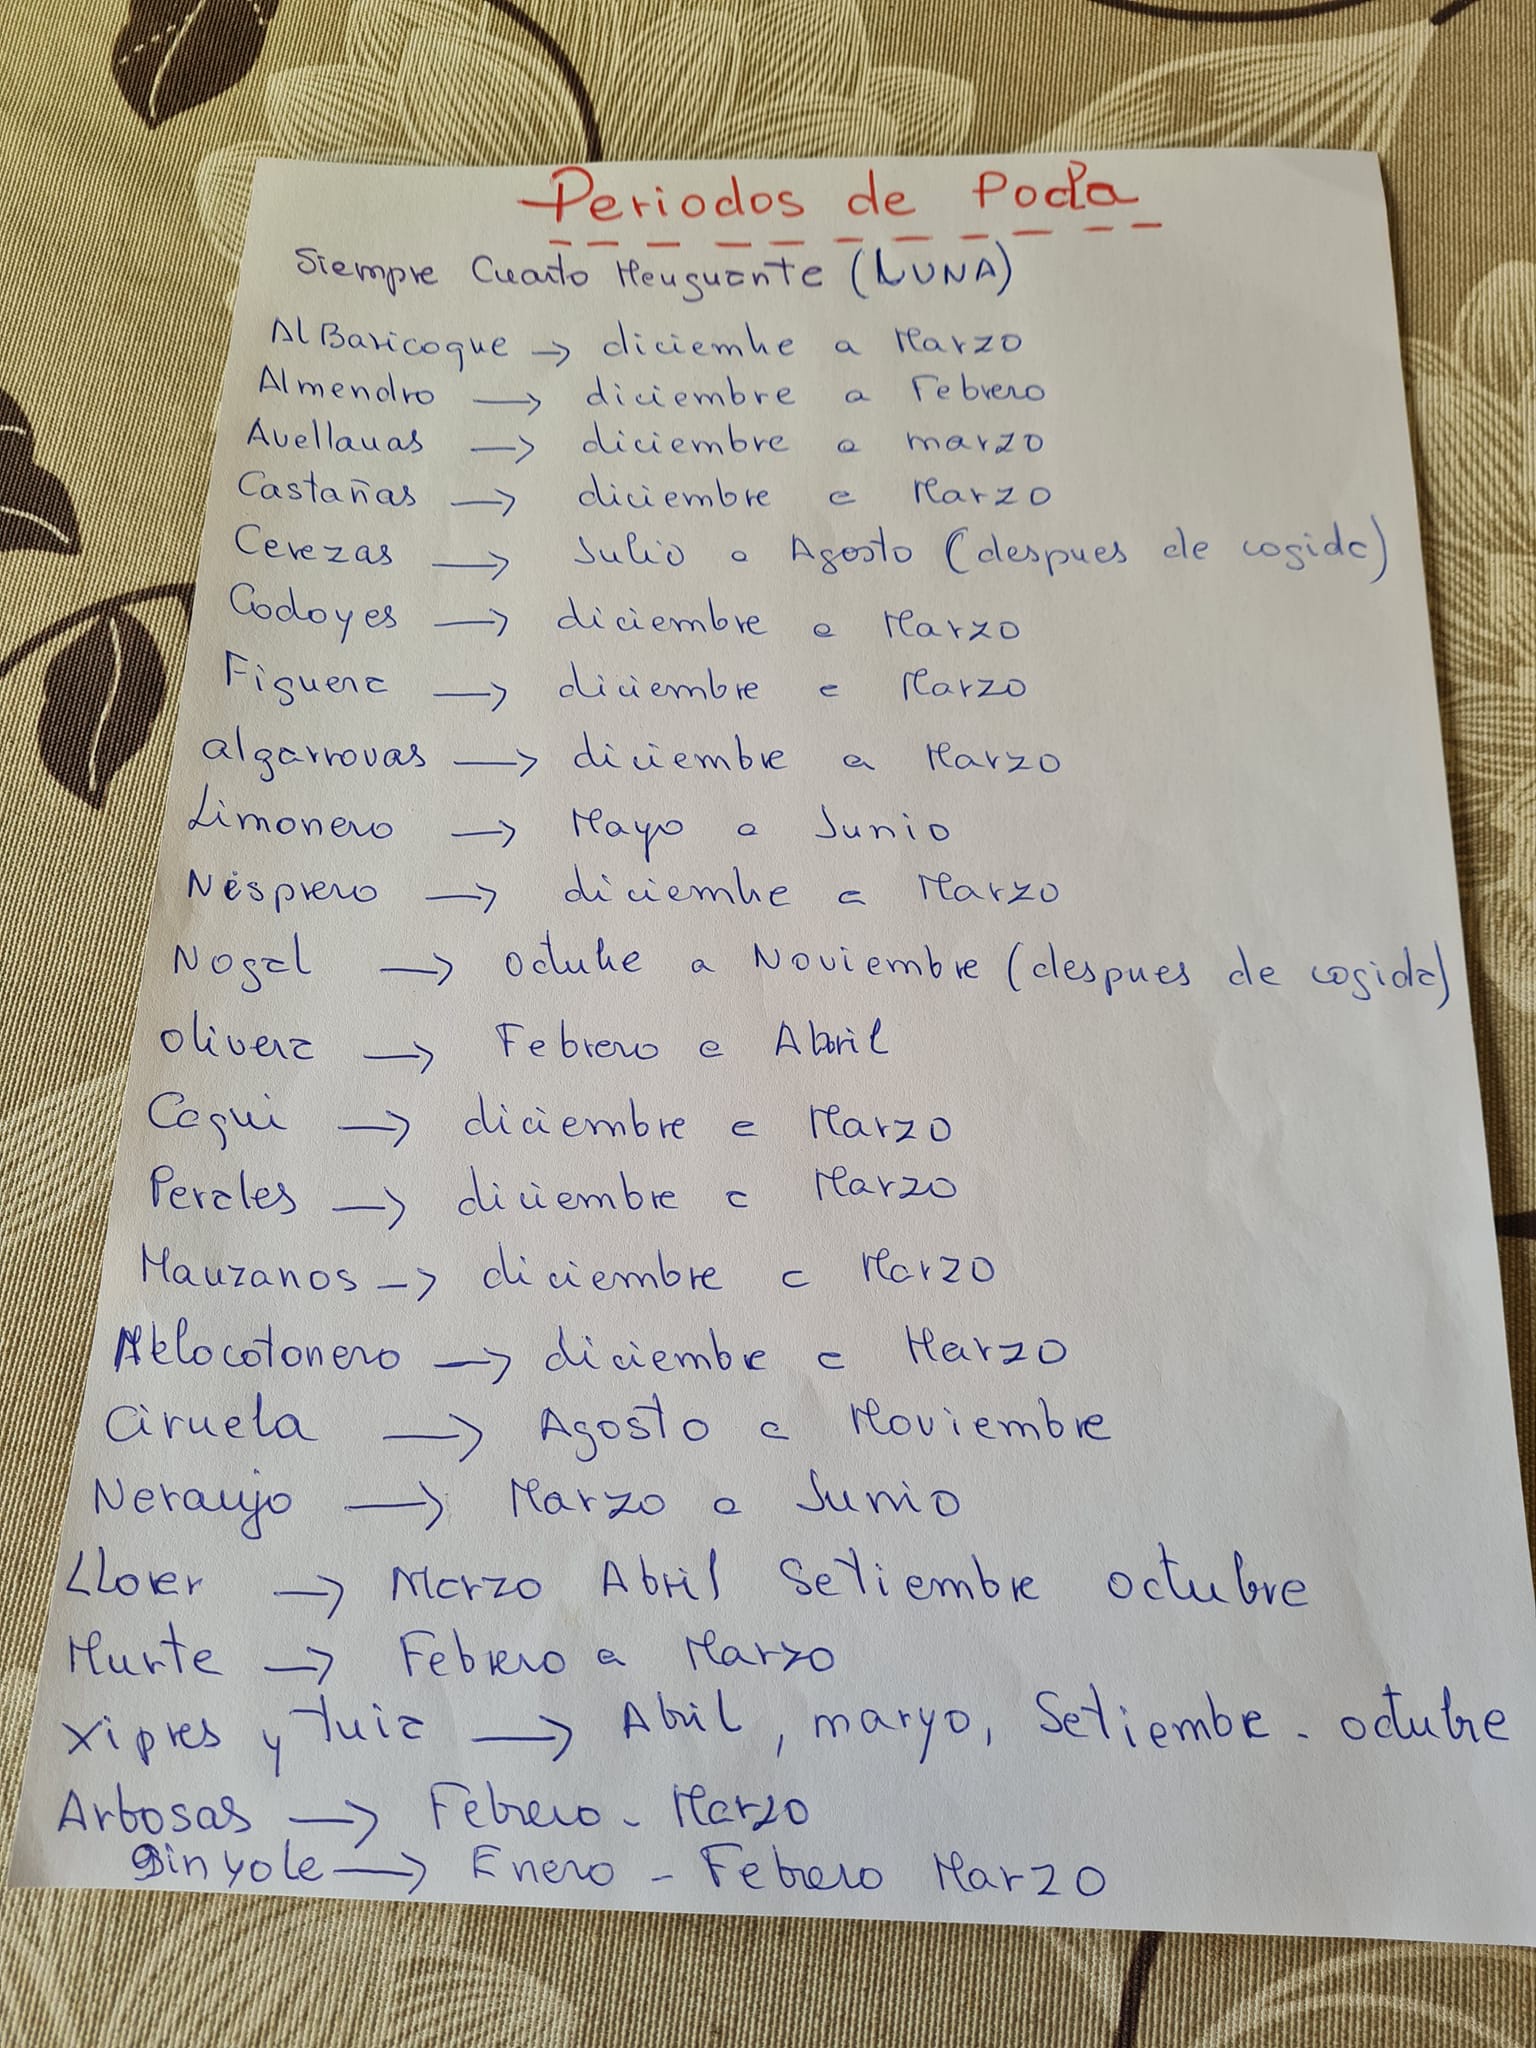 Periodos de Poda
Siempre Cuarto Menguante (LUNA)
AlBaricoque → diciembre a Marzo
Almendro → diciembre a Febrero
Avellanas → diciembre a marzo
Castañas → diciembre a Marzo
Cerezas → Julio a Agosto (despues de cogida)
Codoyes → diciembre a Marzo
Figuera → diciembre a Marzo
algarrovas → diciembre a Marzo
Limonero → Mayo a Junio
Nésprero → diciembre a Marzo
Nogal → octubre a Noviembre (despues de cogida)
olivera → Febrero a Abril
Caqui → diciembre a Marzo
Perales → diciembre a Marzo
Manzanos → diciembre a Marzo
Melocotonero → diciembre a Marzo
Ciruela → Agosto a Noviembre
Neranjo → Marzo a Junio
Llorer → Marzo Abril Setiembre octubre
Murte → Febrero a Marzo
Xipres y tuia → Abril, maryo, Setiembre - octubre
Arbosas → Febrero - Marzo
Ginyole → Enero - Febrero Marzo